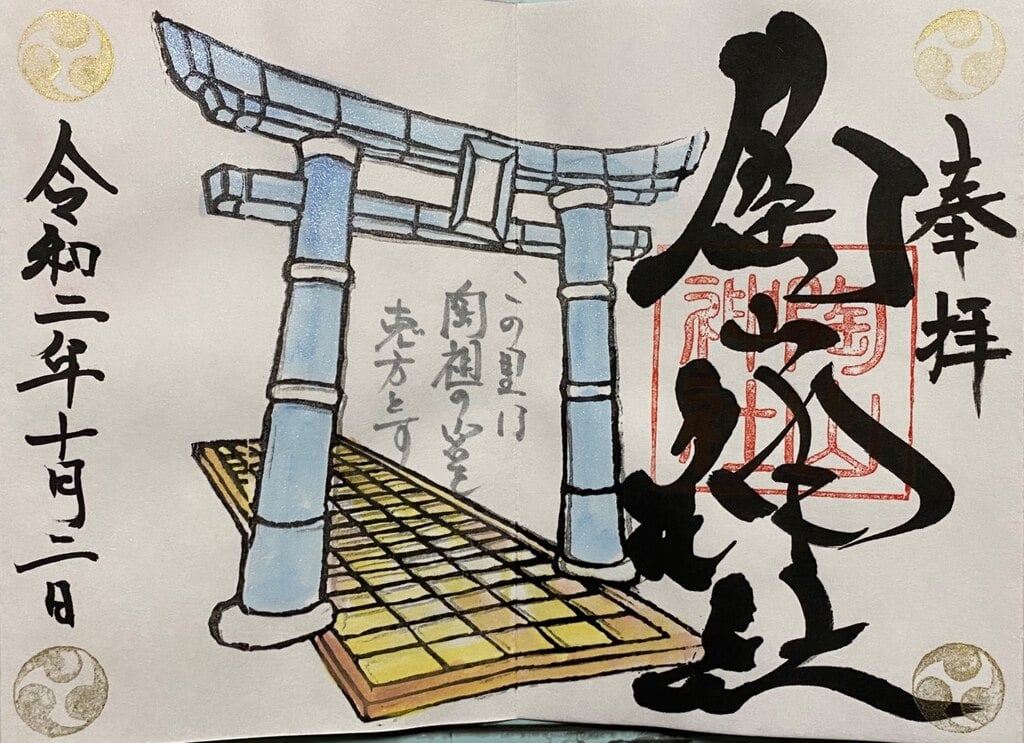 奉拝
陶山神社
陶山
神社
この里は
陶祖の山を
恵方とす
令和二年十月二日